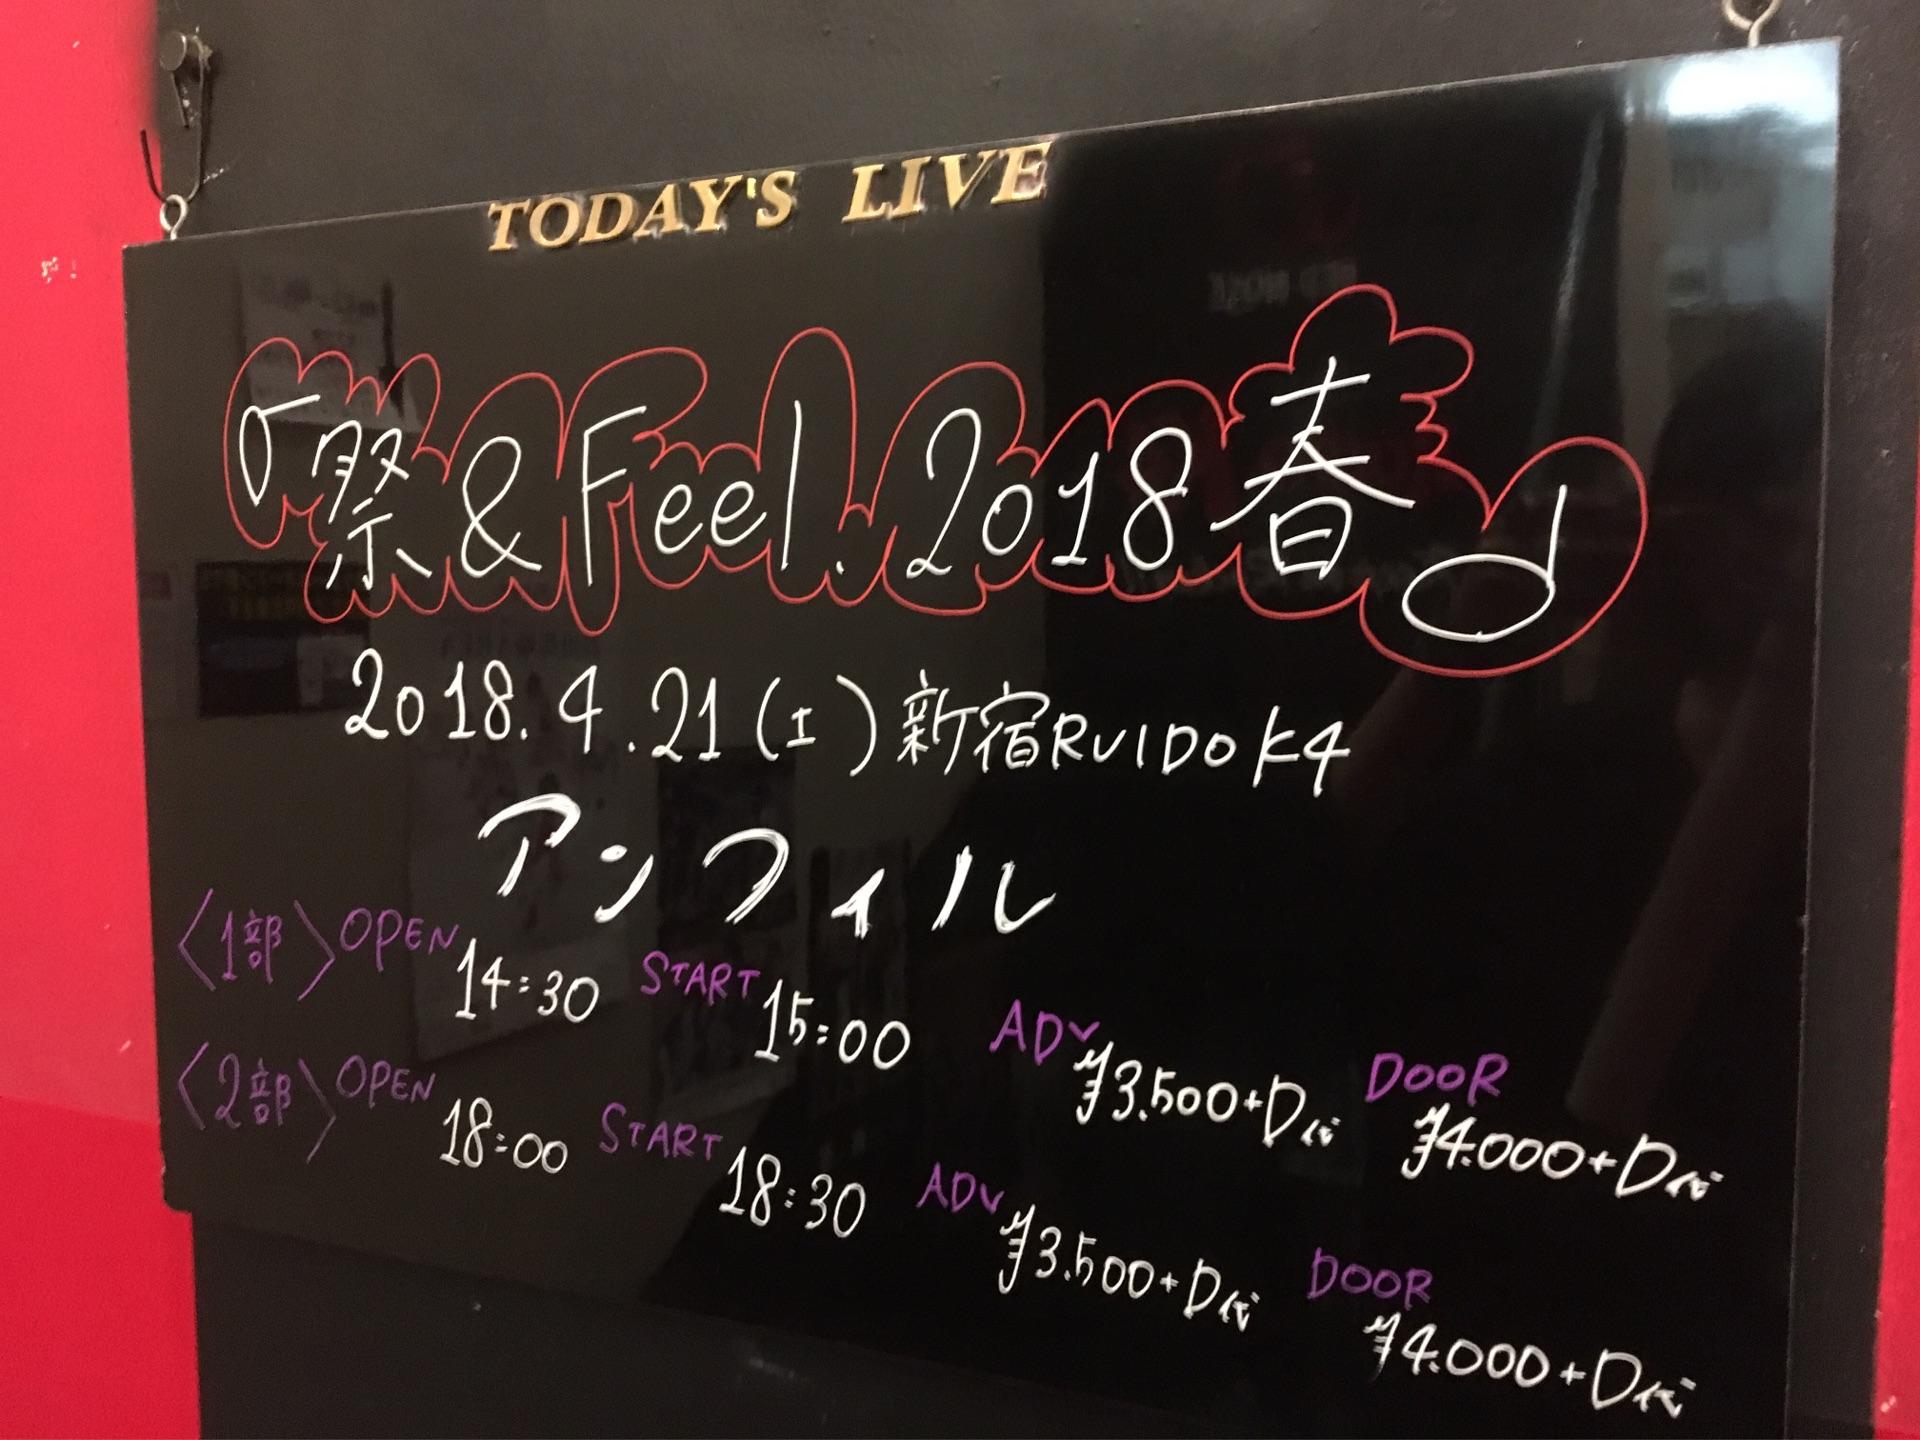 TODAY'S LIVE
祭&Feel.2018春
2018.4.21(土)新宿RUIDO K4
アンフィル
〈1部〉OPEN 14:30 START 15:00 ADV ¥3.500+D代 DOOR ¥4.000+D代
〈2部〉OPEN 18:00 START 18:30 ADV ¥3.500+D代 DOOR ¥4.000+D代